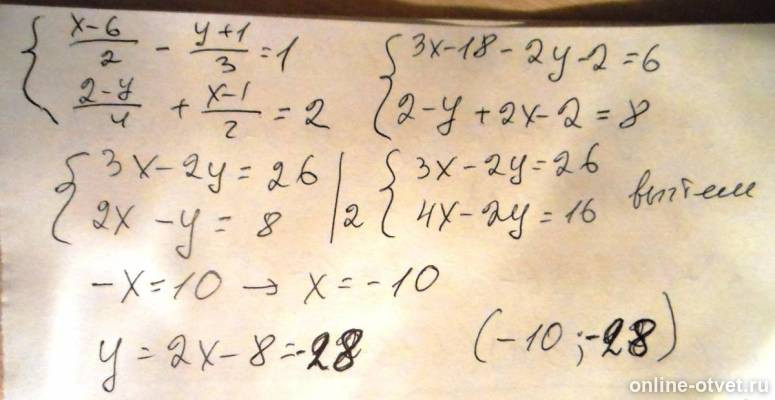 { (x-6)/2 - (y+1)/3 = 1
(2-y)/4 + (x-1)/2 = 2
{ 3x-18-2y-2=6
2-y+2x-2=8
{ 3x-2y=26
2x-y=8 |2
{ 3x-2y=26
4x-2y=16
вычтем
-x=10 → x=-10
y=2x-8=-28
(-10;-28)
online-otvet.ru